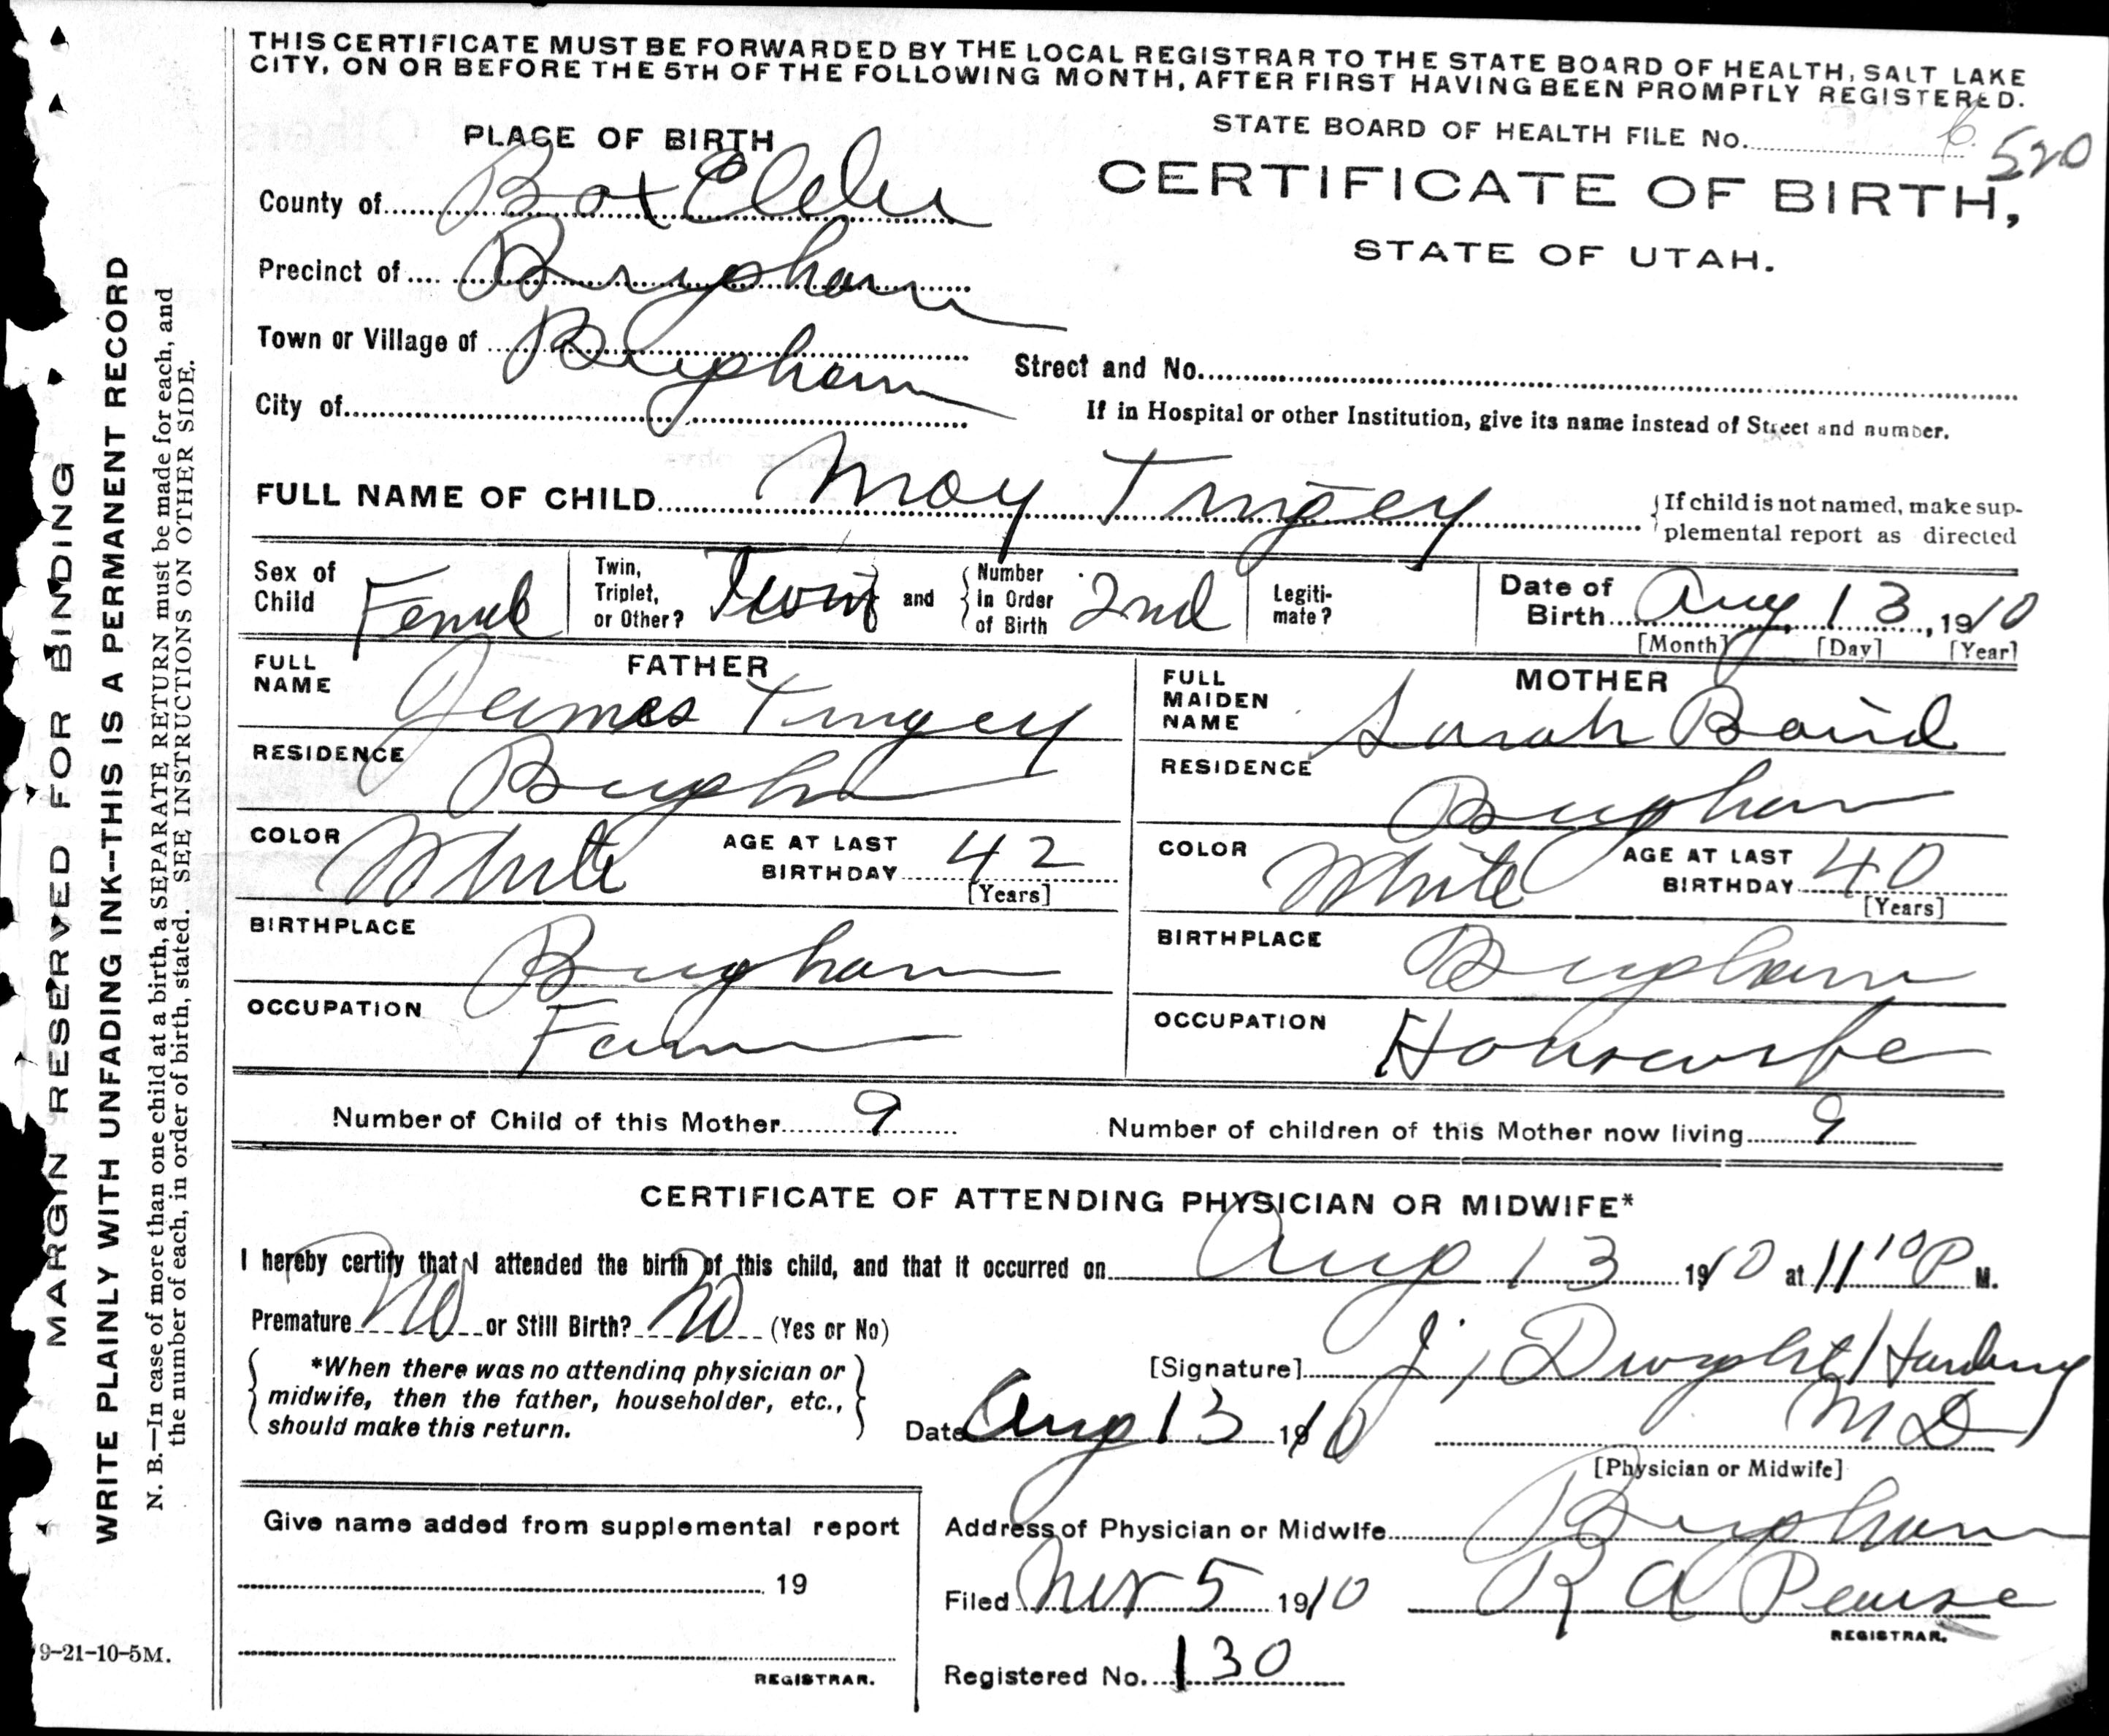 THIS CERTIFICATE MUST BE FORWARDED BY THE LOCAL REGISTRAR TO THE STATE BOARD OF HEALTH, SALT LAKE
CITY, ON OR BEFORE THE 5TH OF THE FOLLOWING MONTH, AFTER FIRST HAVING BEEN PROMPTLY REGISTERED.
STATE BOARD OF HEALTH FILE No. 520
PLACE OF BIRTH
CERTIFICATE OF BIRTH,
STATE OF UTAH.
County of Box Elder
Precinct of Brigham
Town or Village of Brigham
Street and No.
City of
If in Hospital or other Institution, give its name instead of Street and number.
FULL NAME OF CHILD May Tingey
{If child is not named, make sup-
plemental report as directed
Sex of Child Female
Twin, Triplet, or Other? Twin and {Number in Order of Birth 2nd
Legiti-mate?
Date of Birth Aug 13, 1910
[Month] [Day] [Year]
FATHER
FULL NAME James Tingey
RESIDENCE Brigham
COLOR White AGE AT LAST BIRTHDAY 42
[Years]
BIRTHPLACE Brigham
OCCUPATION Farmer
MOTHER
FULL MAIDEN NAME Sarah Baird
RESIDENCE Brigham
COLOR White AGE AT LAST BIRTHDAY 40
[Years]
BIRTHPLACE Brigham
OCCUPATION Housewife
Number of Child of this Mother 9 Number of children of this Mother now living 9
CERTIFICATE OF ATTENDING PHYSICIAN OR MIDWIFE*
I hereby certify that I attended the birth of this child, and that it occurred on Aug 13 1910 at 11 10 P M.
Premature No or Still Birth? No (Yes or No)
{*When there was no attending physician or
midwife, then the father, householder, etc.,
should make this return.}
[Signature] J. Dwight Harding
M D
Date Aug 13 1910
[Physician or Midwife]
Give name added from supplemental report
19
REGISTRAR.
Address of Physician or Midwife Brigham
Filed Nov 5 1910 R A Pearse
REGISTRAR.
Registered No. 130
9-21-10-5M.
MARGIN RESERVED FOR BINDING
WRITE PLAINLY WITH UNFADING INK--THIS IS A PERMANENT RECORD
N. B.—In case of more than one child at a birth, a SEPARATE RETURN must be made for each, and
the number of each, in order of birth, stated. SEE INSTRUCTIONS ON OTHER SIDE.